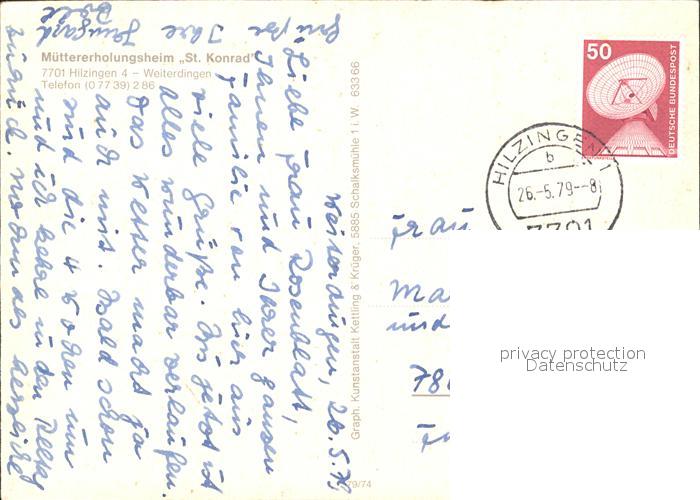 Müttererholungsheim „St. Konrad"
7701 Hilzingen 4 – Weiterdingen
Telefon (0 77 39) 2 86
Weiterdingen, 26.5.79
Liebe Frau Rosenblatt,
Ihnen und Ihrer ganzen
Familie von hier aus
viele Grüße. Bis jetzt ist
alles wunderbar verlaufen.
Das Wetter macht ja
auch mit. Bald schon
sind die 4 Wochen um
und ich kehre in den
zurück. Nochmals herzliche
Grüße Ihre Irmgard
Graph. Kunstanstalt Kettling & Krüger, 5885 Schalksmühle 1 i. W. 633 66
79/74
50
DEUTSCHE BUNDESPOST
HILZINGEN 1
b
26.-5.79--8
7701
Frau
Ma
und
78
privacy protection
Datenschutz